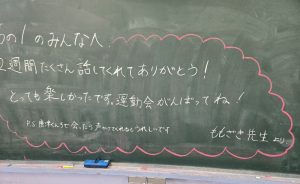 の1のみんなへ
2週間たくさん話してくれてありがとう!
とっても楽しかったです。運動会がんばってね!
P.S. で会ったら声かけてくれるとうれしいです
ももざき先生より